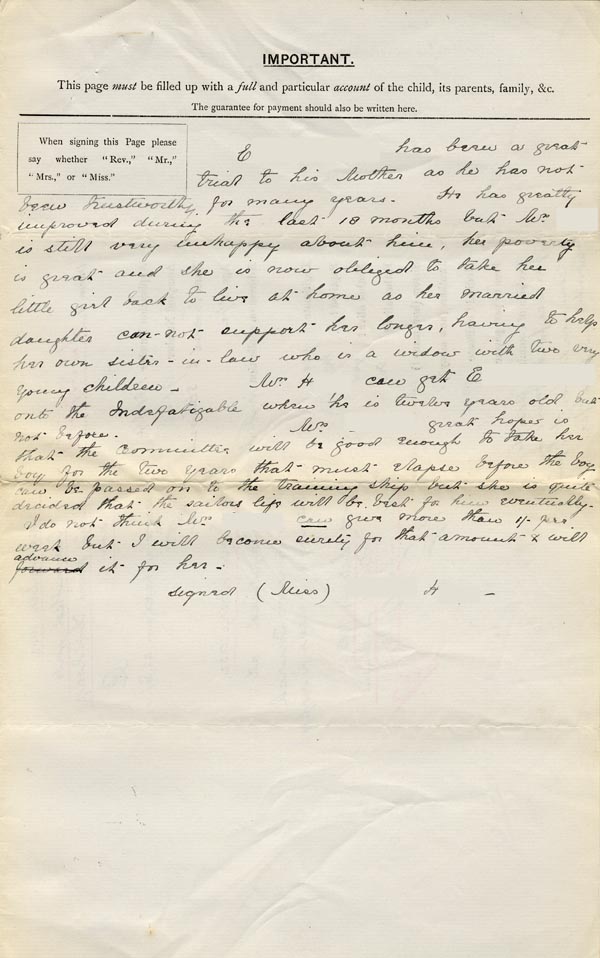 IMPORTANT.
This page must be filled up with a full and particular account of the child, its parents, family, &c.
The guarantee for payment should also be written here.
When signing this Page please
say whether "Rev.," "Mr.,"
"Mrs.," or "Miss."
E has been a great
trial to his Mother as he has not
been trustworthy, for many years. He has greatly
improved during the last 18 months but Mrs
is still very unhappy about him, her poverty
is great and she is now obliged to take her
little girl back to live at home as her married
daughter can-not support her longer, having to help
her own sister-in-law who is a widow with two very
young children - Mrs H can get E
onto the Indefatigable when he is twelve years old but
not before. Mrs great hope is
that the committee will be good enough to take her
boy for the two years that must elapse before the boy
can be passed on to the training ship but she is quite
decided that the sailors life will be best for him eventually.
I do not think Mrs can give more than 1/- per
week but I will become surety for that amount & will
advance
forward it for her -
signed (Miss) H -